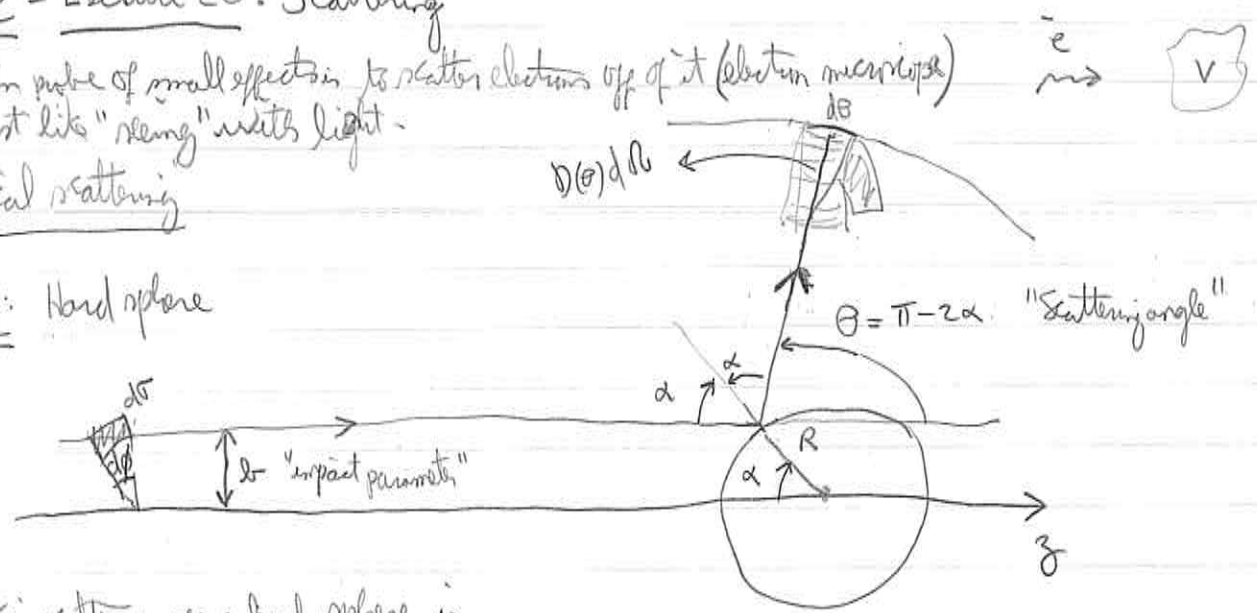 Scattering
n probe of small effects is to scatter electrons off of it (electron microscope)
e⁻
V
st like "seeing" with light.
dθ
D(θ)dΩ
al scattering
: Hard sphere
θ = π-2α. "Scattering angle"
α
α
dσ
R
dφ
b "impact parameter"
α
z
hard sphere is